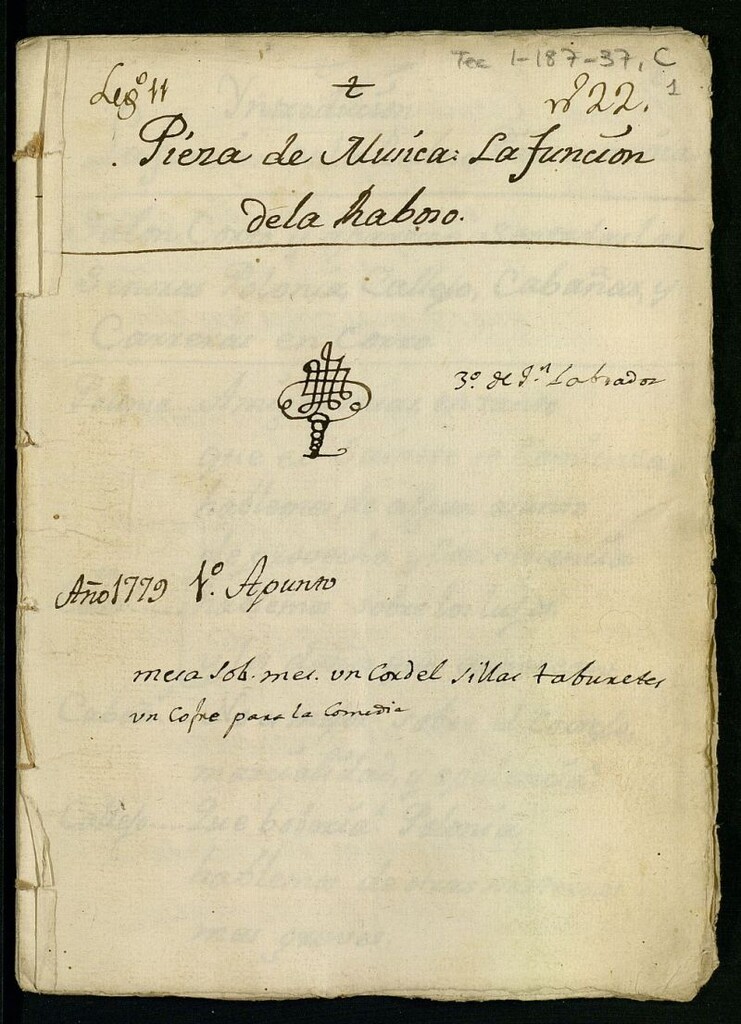 Tea 1-187-37, C
1
Leg.º 11
nº 22.
Pieza de Musica: La funcion
de la Raboso.
3º. de Jn Labrador
Año 1779 1º. Apunto
mesa Sob. mes. un Cordel sillas taburetes
un Cofre para la Comedia